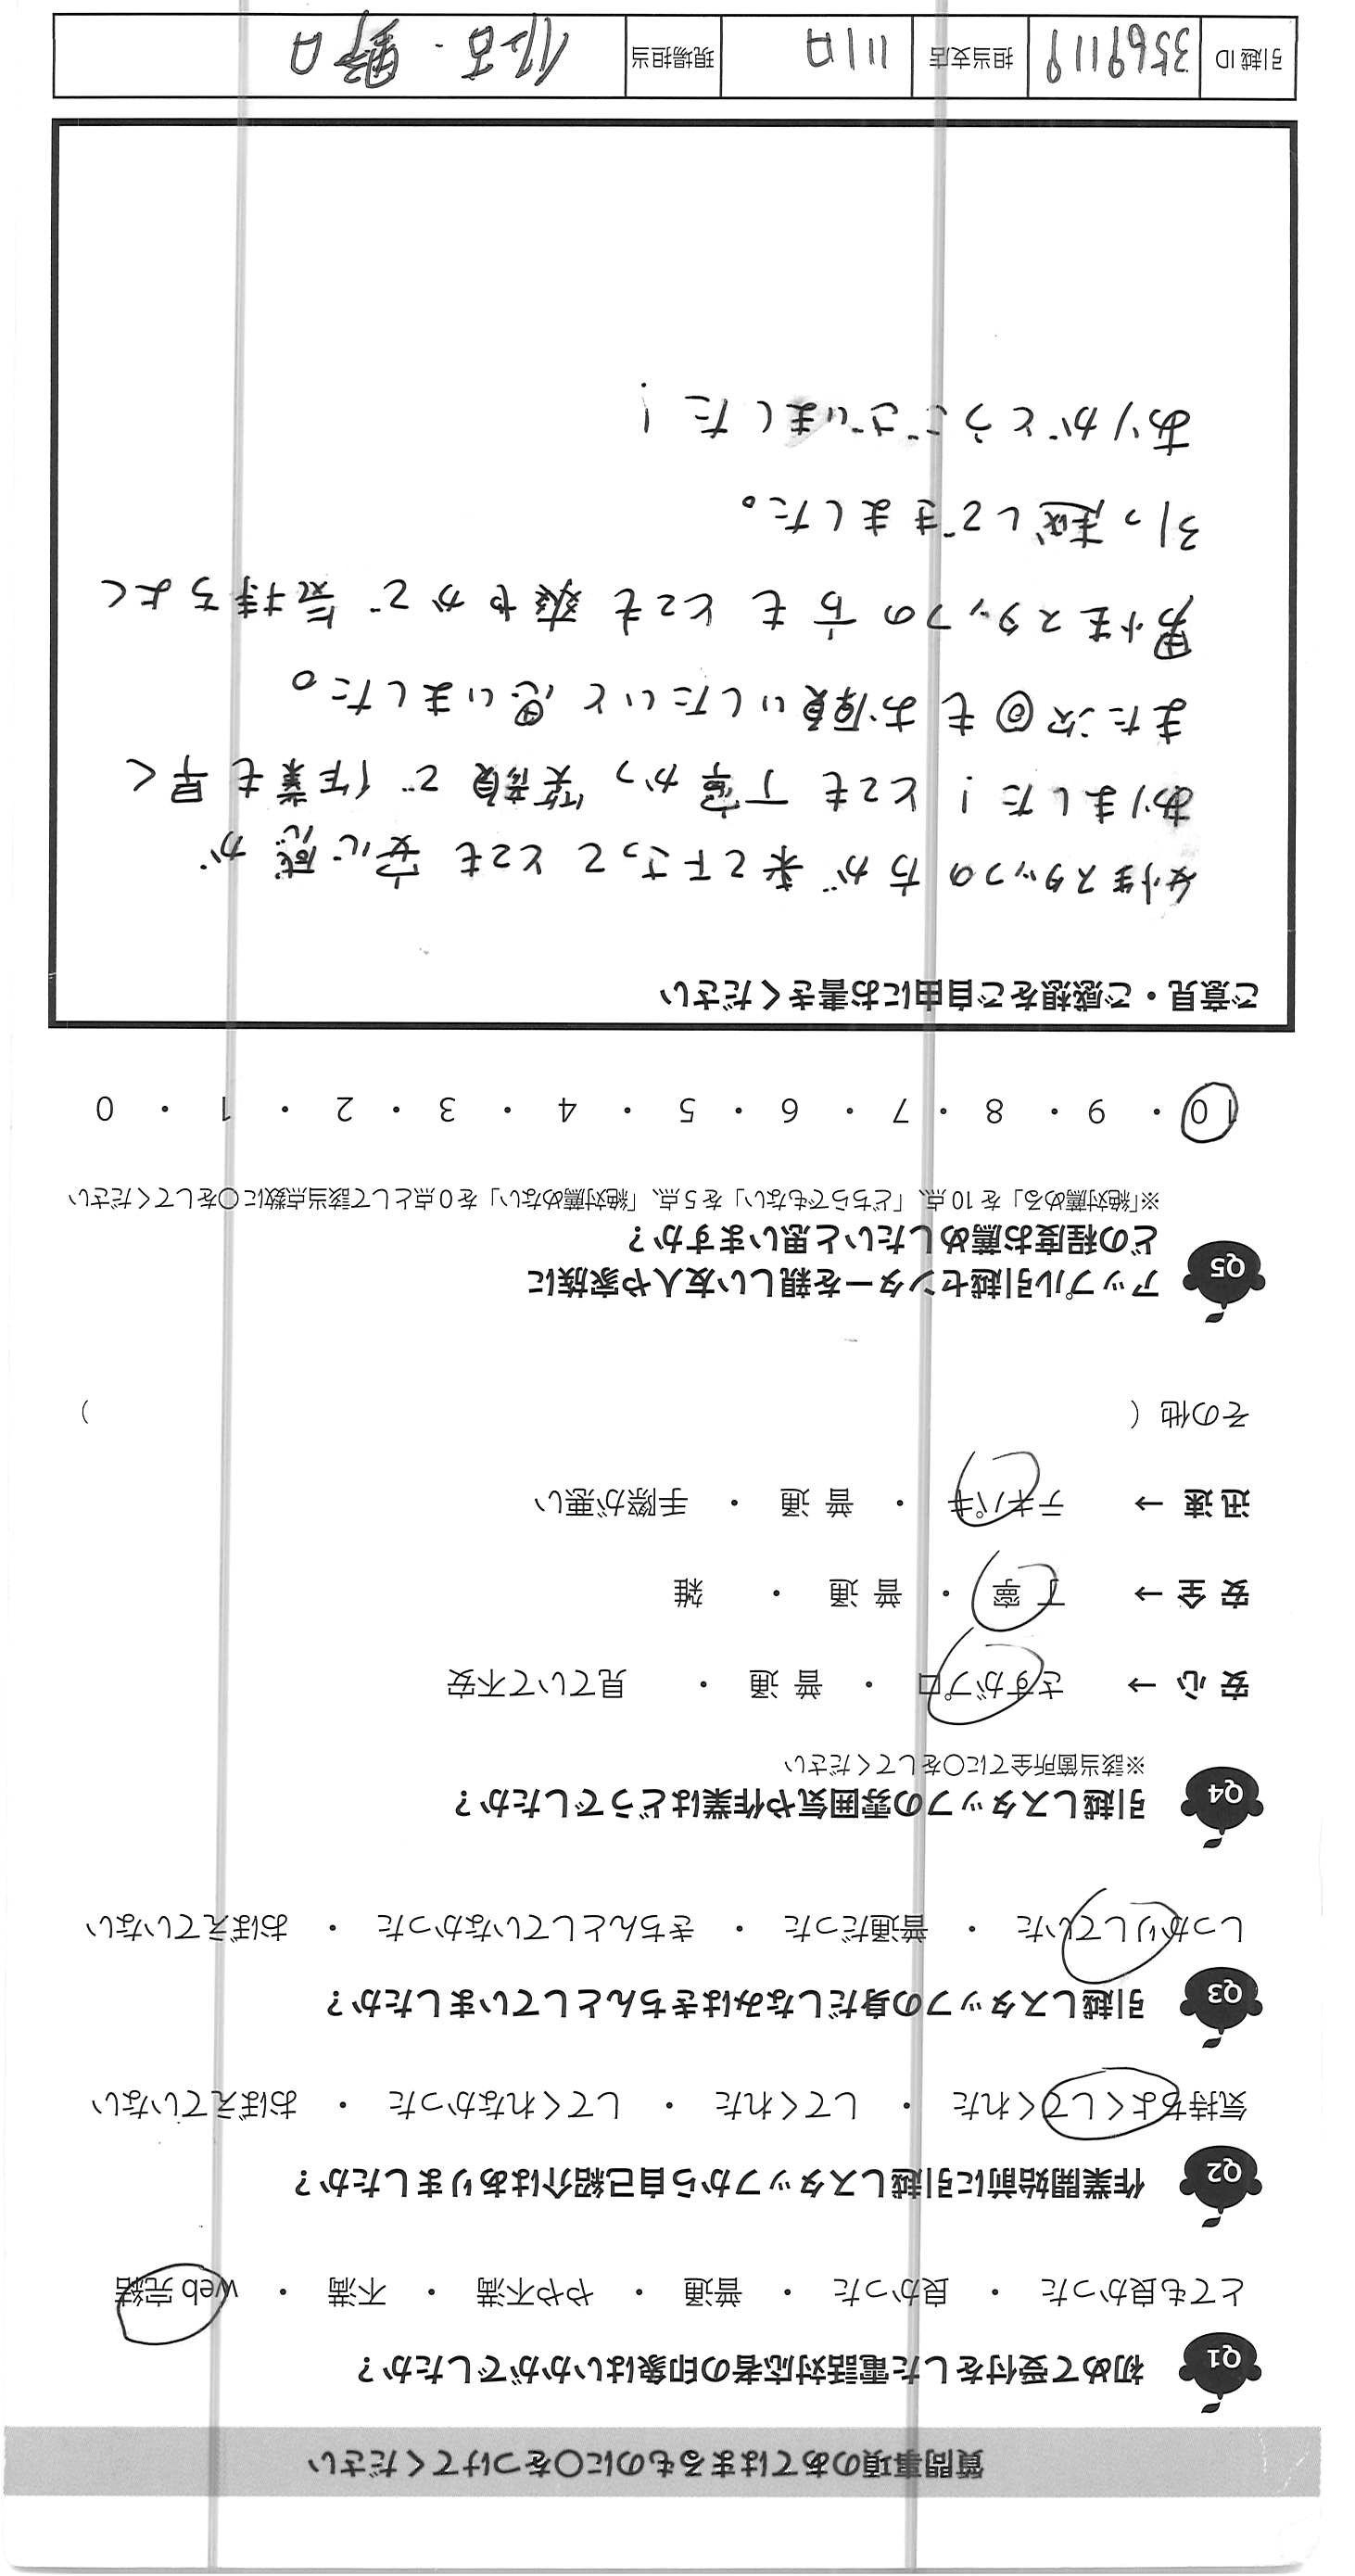 質問事項のあてはまるものに○をつけてください
Q1 初めて受付をした電話対応者の印象はいかがでしたか？
とても良かった ・ 良かった ・ 普通 ・ やや不満 ・ 不満 ・ web 完結
Q2 作業開始前に引越しスタッフから自己紹介はありましたか？
気持ちよくしてくれた ・ してくれた ・ してくれなかった ・ おぼえていない
Q3 引越しスタッフの身だしなみはきちんとしていましたか？
しっかりしていた ・ 普通だった ・ きちんとしていなかった ・ おぼえていない
Q4 引越しスタッフの雰囲気や作業はどうでしたか？
※該当箇所全てに○をしてください
安 心 → さすがプロ ・ 普 通 ・ 見ていて不安
安 全 → 丁 寧 ・ 普 通 ・ 雑
迅 速 → テキパキ ・ 普 通 ・ 手際が悪い
その他（ ）
Q5 アップル引越センターを親しい友人や家族に
どの程度お薦めしたいと思いますか？
※「絶対薦める」を 10 点、「どちらでもない」を 5 点、「絶対薦めない」を 0 点として該当点数に○をしてください
10 ・ 9 ・ 8 ・ 7 ・ 6 ・ 5 ・ 4 ・ 3 ・ 2 ・ 1 ・ 0
ご意見・ご感想をご自由にお書きください
女性スタッフの方が来て下さってとても安心感が
ありました！とても丁寧かつ笑顔で作業も早く
また次回もお願いしたいと思いました。
男性スタッフの方もとても爽やかで気持ちよく
引っ越しできました。
ありがとうございました！
引越 ID 3569119 担当支店 川口 現場担当 ・野口